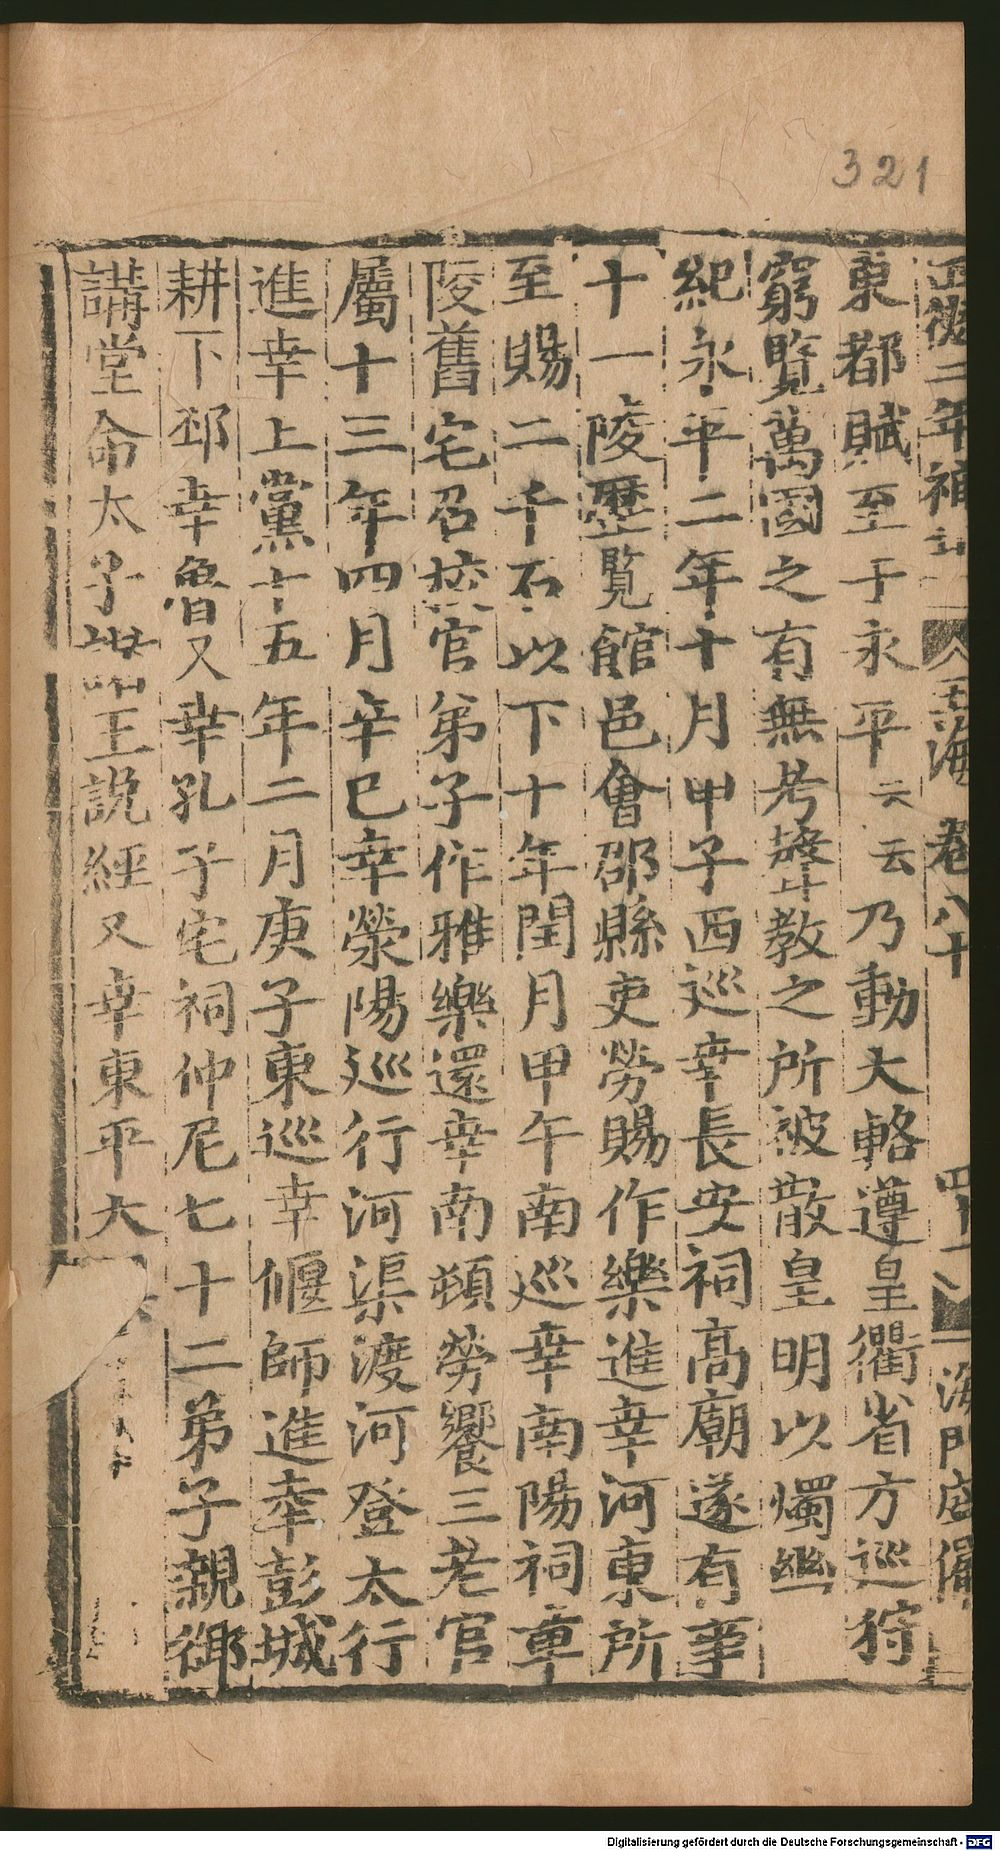 321
正德二年補刊
玉海 卷八十
海門庭備
東都賦至于永平云云乃動大輅遵皇衢省方巡狩
窮覽萬國之有無考聲教之所被散皇明以燭幽
紀永平二年十月甲子西巡幸長安祠高廟遂有事
十一陵歷覽館邑會郡縣吏勞賜作樂進幸河東所
至賜二千石以下十年閏月甲午南巡幸南陽祠章
陵舊宅召校官弟子作雅樂還幸南頓勞饗三老官
屬十三年四月辛巳幸滎陽巡行河渠渡河登太行
進幸上黨十五年二月庚子東巡幸偃師進幸彭城
耕下邳幸魯又幸孔子宅祠仲尼七十二弟子親御
講堂命太子諸王說經又幸東平大
Digitalisierung gefördert durch die Deutsche Forschungsgemeinschaft - DFG